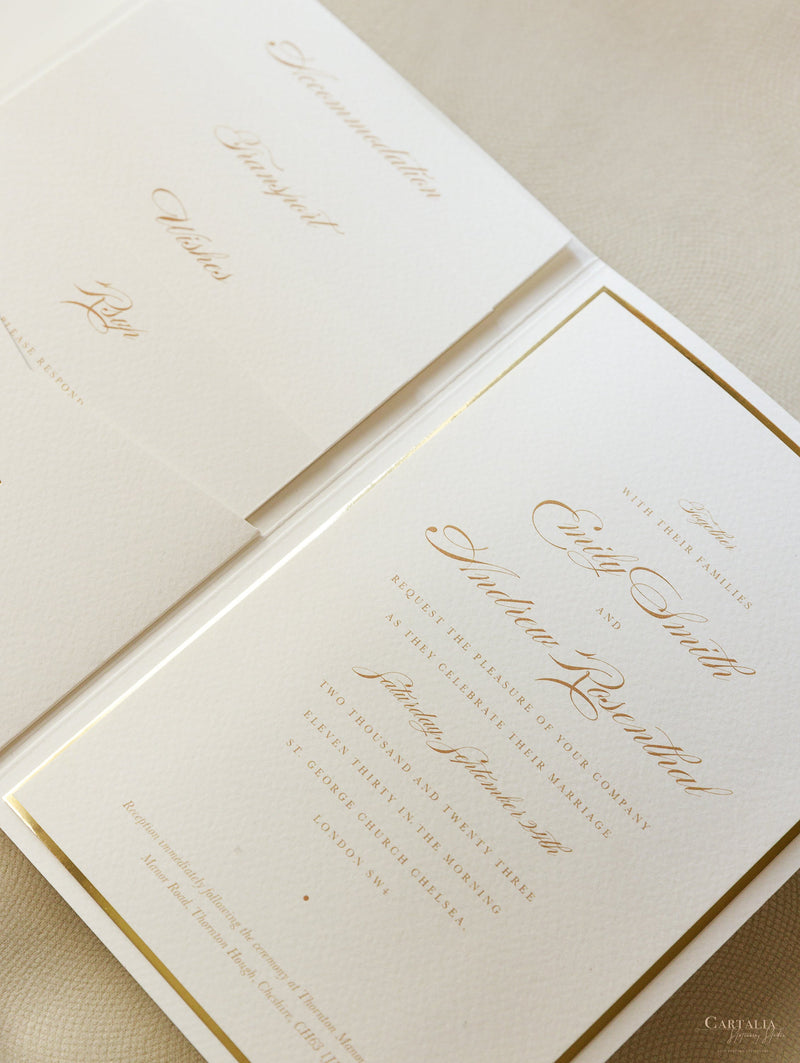 Accommodation
Transport
Wishes
Rsvp
PLEASE RESPOND
Together
WITH THEIR FAMILIES
Emily Smith
AND
Andrew Rosenthal
REQUEST THE PLEASURE OF YOUR COMPANY
AS THEY CELEBRATE THEIR MARRIAGE
Saturday, September 24th
TWO THOUSAND AND TWENTY THREE
ELEVEN THIRTY IN THE MORNING
ST. GEORGE CHURCH CHELSEA,
LONDON SW4
Reception immediately following the ceremony at Thornton Manor
Manor Road, Thornton Hough, Cheshire, CH63 1J
CARTALIA